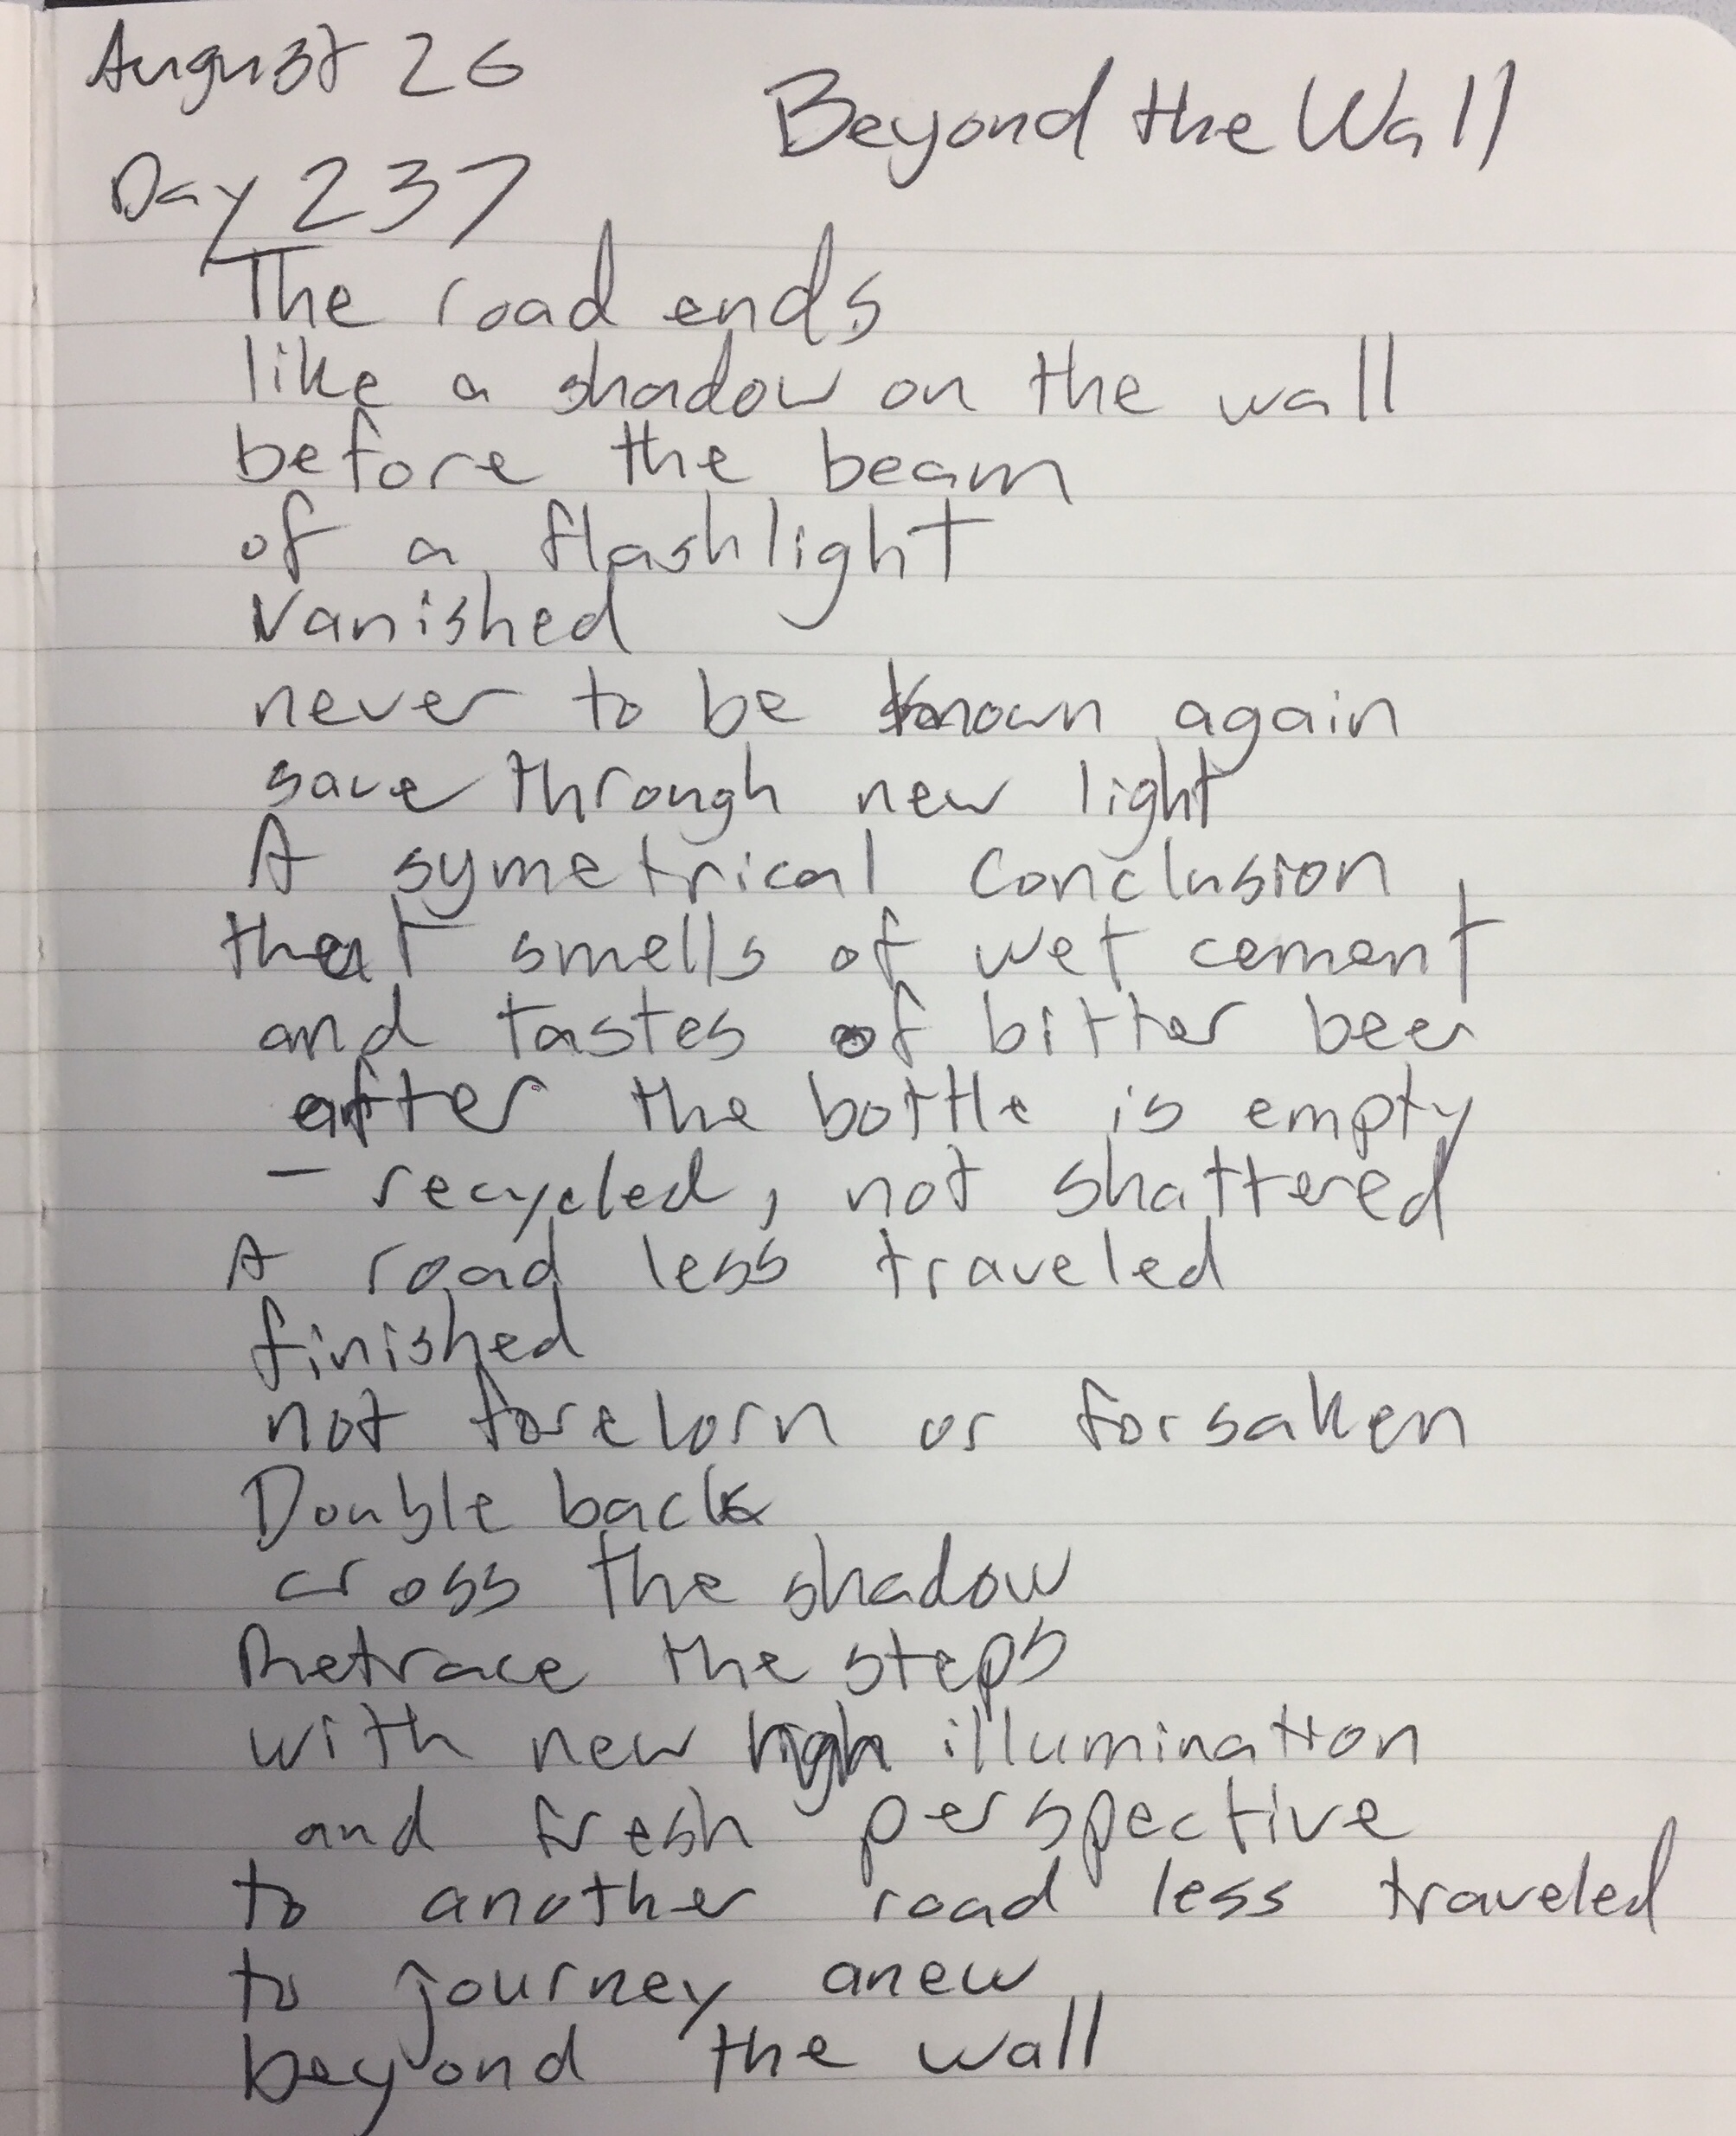 August 26
Beyond the Wall
Day 237
The road ends
like a shadow on the wall
before the beam
of a flashlight
Vanished
never to be known again
save through new light
A symetrical conclusion
that smells of wet cement
and tastes of bitter beer
after the bottle is empty
– recycled, not shattered
A road less traveled
finished
not forelorn or forsaken
Double back
cross the shadow
Retrace the steps
with new illumination
and fresh perspective
to another road less traveled
to journey anew
beyond the wall